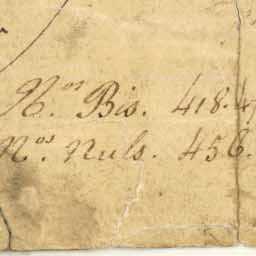 N.os Bis. 418.
N.os Nuls. 456.